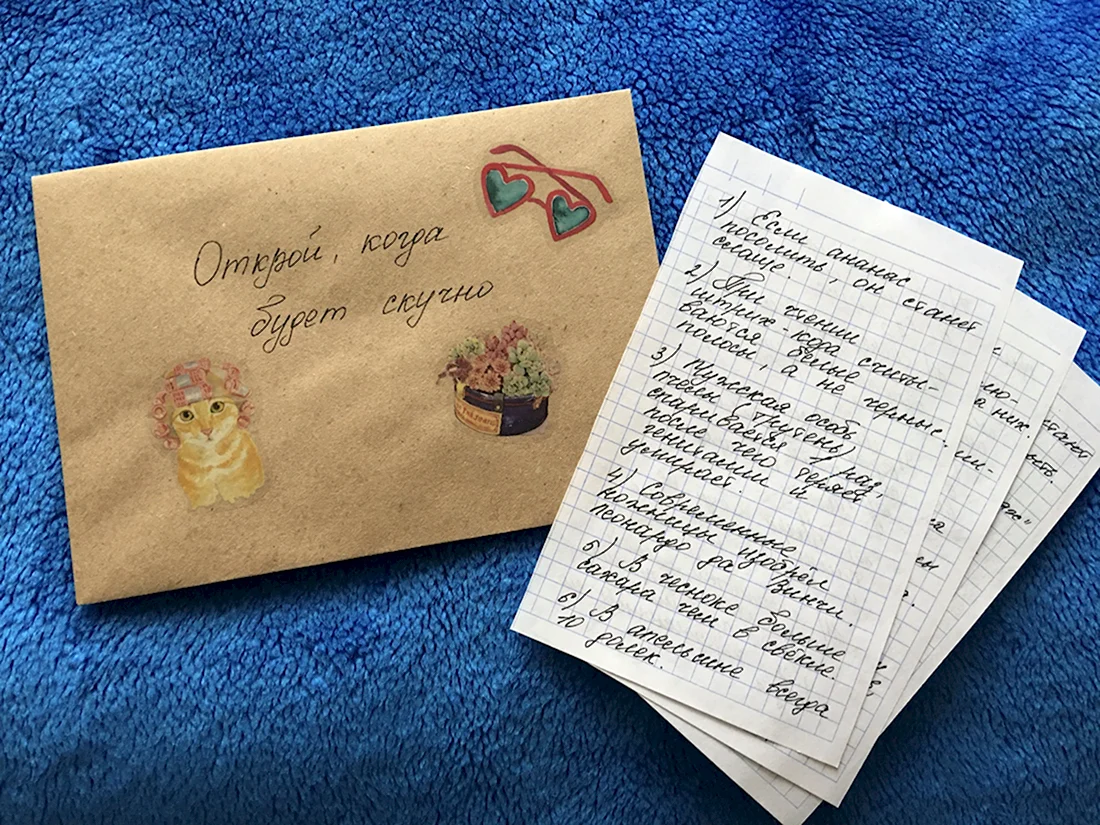 Открой, когда
будет скучно
1) Если ананас
посолить, он станет
слаще.
2) При чтении
штрих-кода считы-
ваются белые
полосы, а не черные.
3) Мужская особь
пчелы (трутень)
спаривается 1 раз,
после чего теряет
гениталии и
умирает.
4) Современные
ножницы изобрёл
Леонардо да Винчи.
5) В чесноке больше
сахара чем в свёкле.
6) В апельсине всегда
10 долек.
на них.
станет